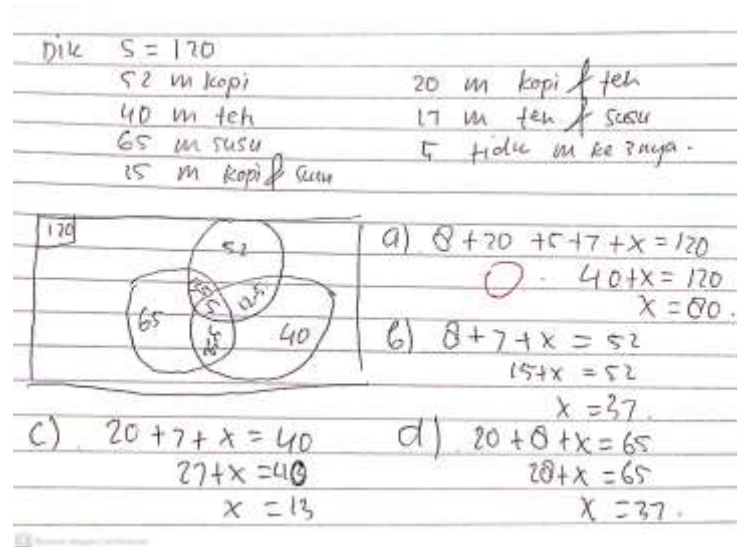 Dik S = 120
52 m kopi
40 m teh
65 m susu
25 m kopi & susu
20 m kopi & teh
17 m teh & susu
5 tidk m ke 3 nya.
120
52
65
40
5
a) 8 + 20 + 5 + 7 + x = 120
40 + x = 120
x = 80.
b) 8 + 7 + x = 52
15 + x = 52
x = 37.
c) 20 + 7 + x = 40
27 + x = 40
x = 13
d) 20 + 8 + x = 65
28 + x = 65
x = 37.